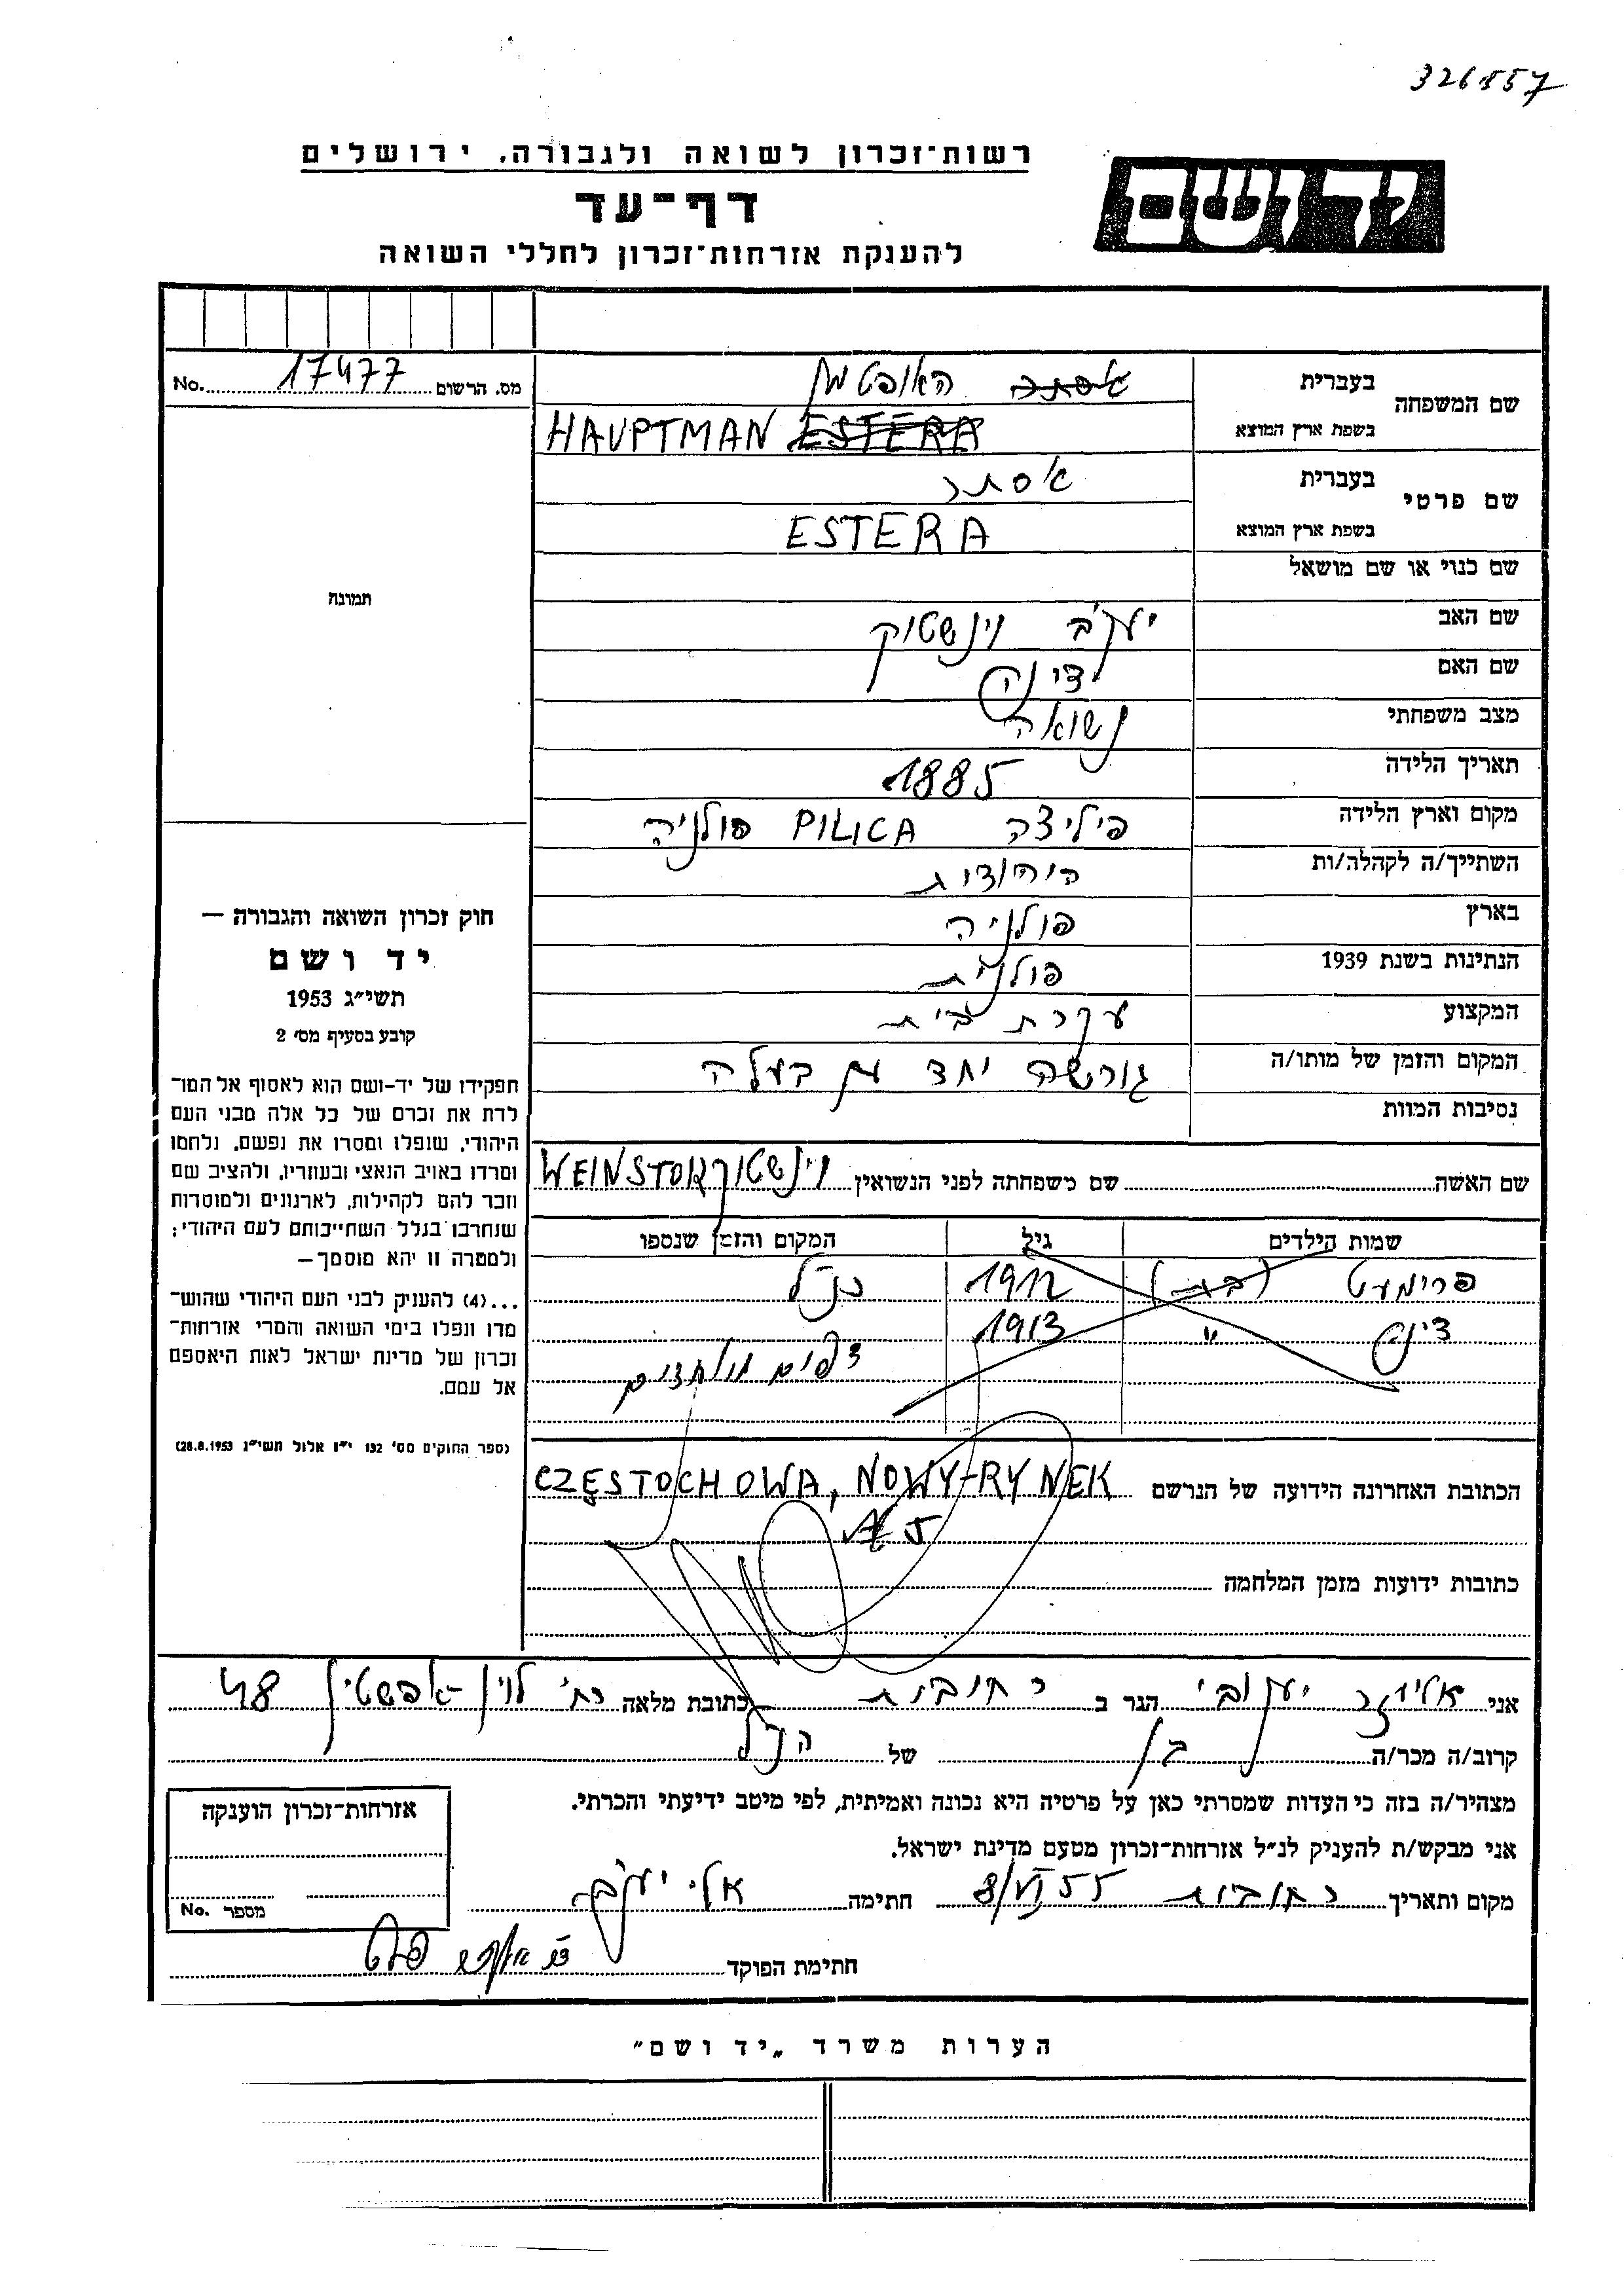 326557
רשות־זכרון לשואה ולגבורה, ירושלים
יד ושם
דף־עד
להענקת אזרחות־זכרון לחללי השואה
מס. הרשום 17477 No.
שם המשפחה
בעברית אסתר האופטמן
בשפת ארץ המוצא HAUPTMAN ESTERA
שם פרטי
בעברית אסתר
בשפת ארץ המוצא ESTERA
שם כנוי או שם מושאל
שם האב יעקב וינשטוק
שם האם דינה
מצב משפחתי נשואה
תאריך הלידה 1885
מקום וארץ הלידה פיליצה PILICA פולניה
השתייך/ה לקהלה/ות
בארץ פולניה
הנתינות בשנת 1939 פולנית
המקצוע עקרת בית
המקום והזמן של מותו/ה גורשה יחד עם בעלה
נסיבות המוות
שם האשה שם משפחתה לפני הנשואין וינשטוק WEINSTOK
שמות הילדים גיל המקום והזמן שנספו
פרימעט (בת) 1912 כנ"ל
דינה " 1913
דפים מיוחדים
הכתובת האחרונה הידועה של הנרשם CZĘSTOCHOWA, NOWY-RYNEK
5
כתובות ידועות מזמן המלחמה
תמונה
חוק זכרון השואה והגבורה —
יד ושם
תשי״ג 1953
קובע בסעיף מס׳ 2
תפקידו של יד-ושם הוא לאסוף אל המו־
לדת את זכרם של כל אלה מבני העם
היהודי, שנפלו ומסרו את נפשם, נלחמו
ומרדו באויב הנאצי ובעוזריו, ולהציב שם
וזכר להם לקהילות, לארגונים ולמוסדות
שנחרבו בגלל השתייכותם לעם היהודי;
ולמטרה זו יהא מוסמך—
...(4) להעניק לבני העם היהודי שהוש־
מדו ונפלו בימי השואה והמרי אזרחות־
זכרון של מדינת ישראל לאות היאספם
אל עמם.
(ספר החוקים מס׳ 132 י״ז אלול תשי״ג 28.8.1953)
אני אליעזר יעקובי הגר ב רחובות כתובת מלאה רח' לוין אפשטין 48
קרוב/ה מכר/ה בן של הנ"ל
מצהיר/ה בזה כי העדות שמסרתי כאן על פרטיה היא נכונה ואמיתית, לפי מיטב ידיעתי והכרתי.
אני מבקש/ת להעניק לנ״ל אזרחות־זכרון מטעם מדינת ישראל.
מקום ותאריך רחובות 8/VI 55 חתימה
חתימת הפוקד
אזרחות־זכרון הוענקה
מספר No.
הערות משרד „יד ושם״